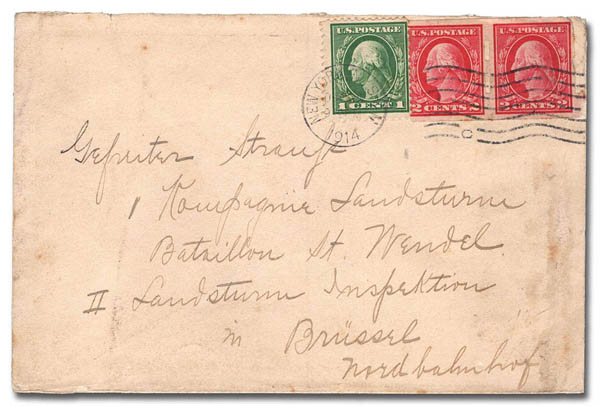 U.S. POSTAGE
1 CENT 1
U.S. POSTAGE
2 CENTS 2
U.S. POSTAGE
2 CENTS 2
NEW YORK
1914
Gefreiter Strauß
1 Kompagnie Landsturm
Bataillon St. Wendel
II Landsturm Inspektion
in Brüssel
Nordbahnhof